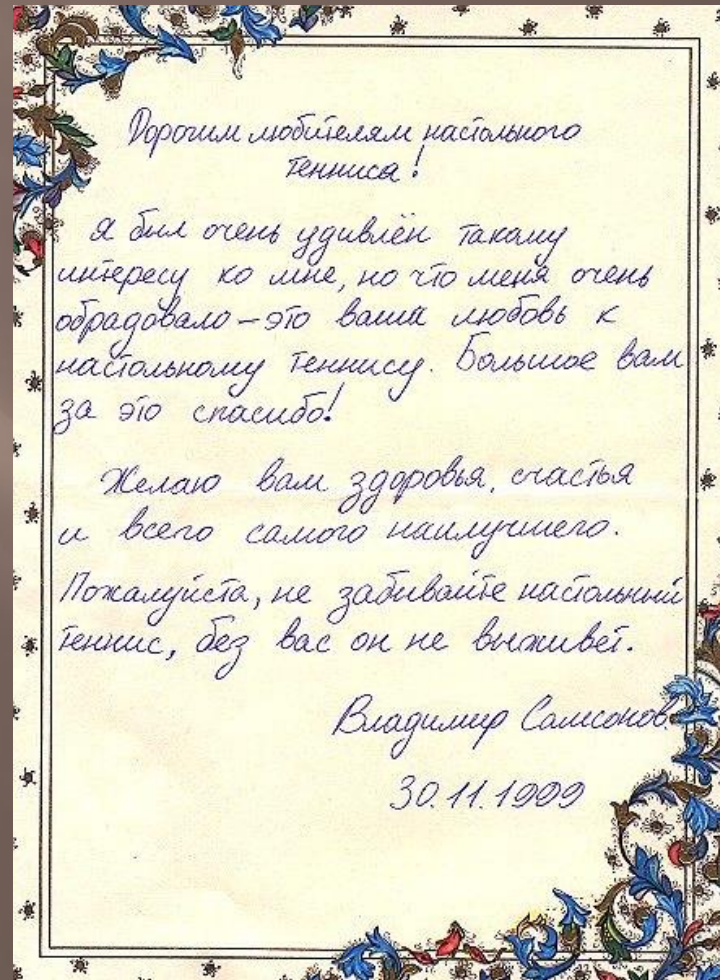 Дорогим любителям настольного
тенниса!
Я был очень удивлён такому
интересу ко мне, но что меня очень
обрадовало – это ваша любовь к
настольному теннису. Большое вам
за это спасибо!
Желаю вам здоровья, счастья
и всего самого наилучшего.
Пожалуйста, не забывайте настольный
теннис, без вас он не выживет.
Владимир Самсонов.
30.11.1999